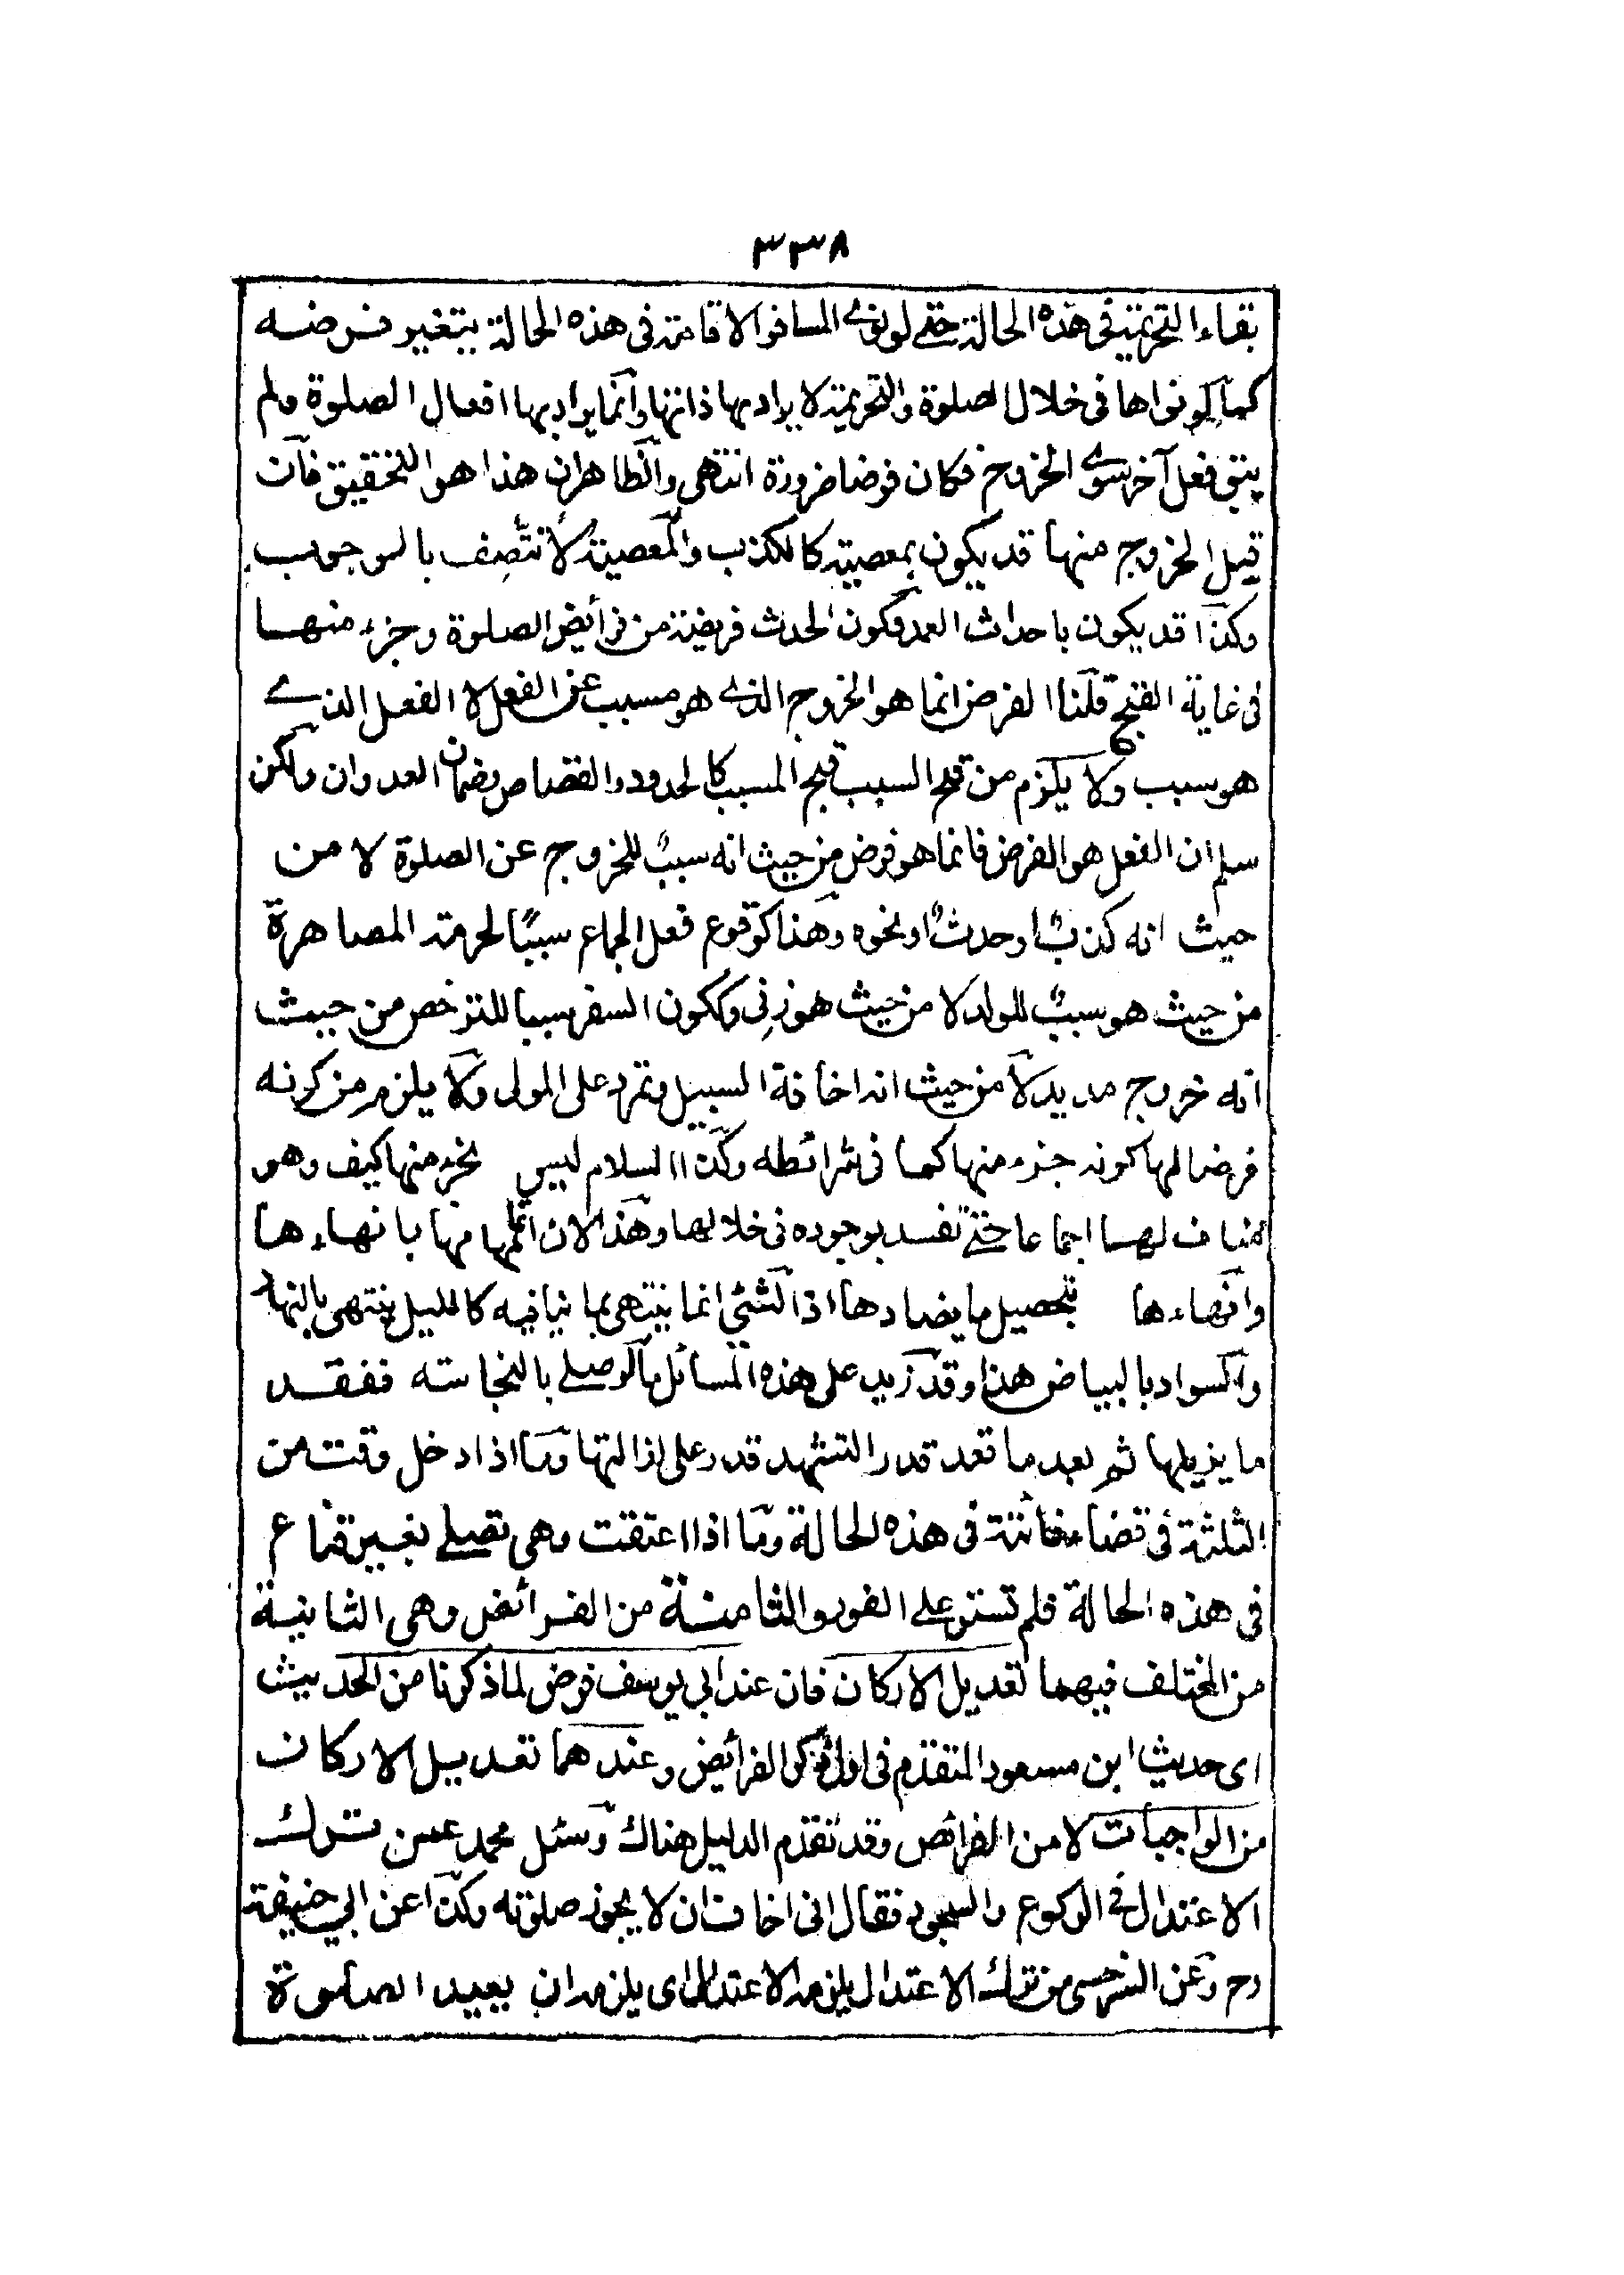 ٣٣٨
بقاء التحريمة فى هذه الحالة حتے لو نوے المسافر الاقامة فى هذه الحالة يتغير فرضه
كما لو نواها فى خلال الصلوة والتحريمة لا يراد بها ذاتها وانما يراد بها افعال الصلوة ولم
يبق فعل آخر سوے الخروج فكان فرضا ضرورة انتهى والظاهر ان هذا هو التحقيق فان
قيل الخروج منها قد يكون بمعصية كالكذب والمعصية لا تتصف بالوجوب
وكذا قد يكون باحداث العمد فكون الحدث فريضة من فرائض الصلوة وجزء منها
فى غاية القبح قلنا الفرض انما هو الخروج الذے هو مسبب عن الفعل لا الفعل الذے
هو سبب ولا يلزم من قبح السبب قبح المسبب كالحدود والقصاص وضمان العدوان ولكن
سلم ان الفعل هو الفرض فانما هو فرض من حيث انه سببٌ للخروج عن الصلوة لا من
حيث انه كذبٌ او حدثٌ او نحوه وهذا كوقوع فعل الجماع سببًا لحرمة المصاهرة
من حيث هو سببٌ للولد لا من حيث هو زنى وككون السفر سببا للترخص من حيث
انه خروج مديد لا من حيث انه اخافة السبيل وتمرد على المولى ولا يلزم من كونه
فرضا لها كونه جزء منها كما فى شرائطه وكذا السلام ليس بجزء منها كيف وهو
مناف لها اجماعا حتے تفسد بوجوده فى خلالها وهذا لان اتمامها بانهاءها
وانهاءها بتحصيل ما يضادها اذ الشئ انما ينتهى بما ينافيه كالليل ينتهى بالنهار
والسواد بالبياض هذا وقد زيد على هذه المسائل ما لو صلے بالنجاسته ففقد
ما يزيلها ثم بعد ما قعد قدر التشهد قدر على ازالتها وما اذا دخل وقت من
الثلثة فى قضاء فائتة فى هذه الحالة وما اذا اعتقت وهى تصلے بغير قناع
فى هذه الحالة فلم تستر على الفور والثامنة من الفرائض وهى الثانية
من المختلف فيهما تعديل الاركان فان عند ابى يوسف فرض لما ذكرنا من الحديث
اى حديث ابن مسعود المتقدم فى اول ذكر الفرائض وعندهما تعديل الاركان
من الواجبات لا من الفرائض وقد تقدم الدليل هناك وسئل محمد عمن ترك
الاعتدال فى الركوع والسجود فقال انى اخاف ان لا يجوز صلوته وكذا عن ابى حنيفة
رح وعن السرخسى من ترك الاعتدال يلزمه الاعتدال اى يلزمه ان يعيد الصلوة